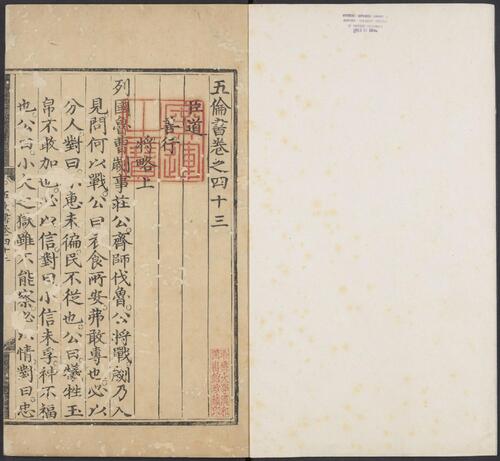 五倫書卷之四十三
臣道
善行
將略上
列國魯曹劌事莊公齊師伐魯公將戰劌乃入
見問何以戰公曰衣食所安弗敢專也必以
分人對曰小惠未徧民不從也公曰犧牲玉
帛不敢加也必以信對曰小信未孚神不福
也公曰小大之獄雖不能察必以情對曰忠